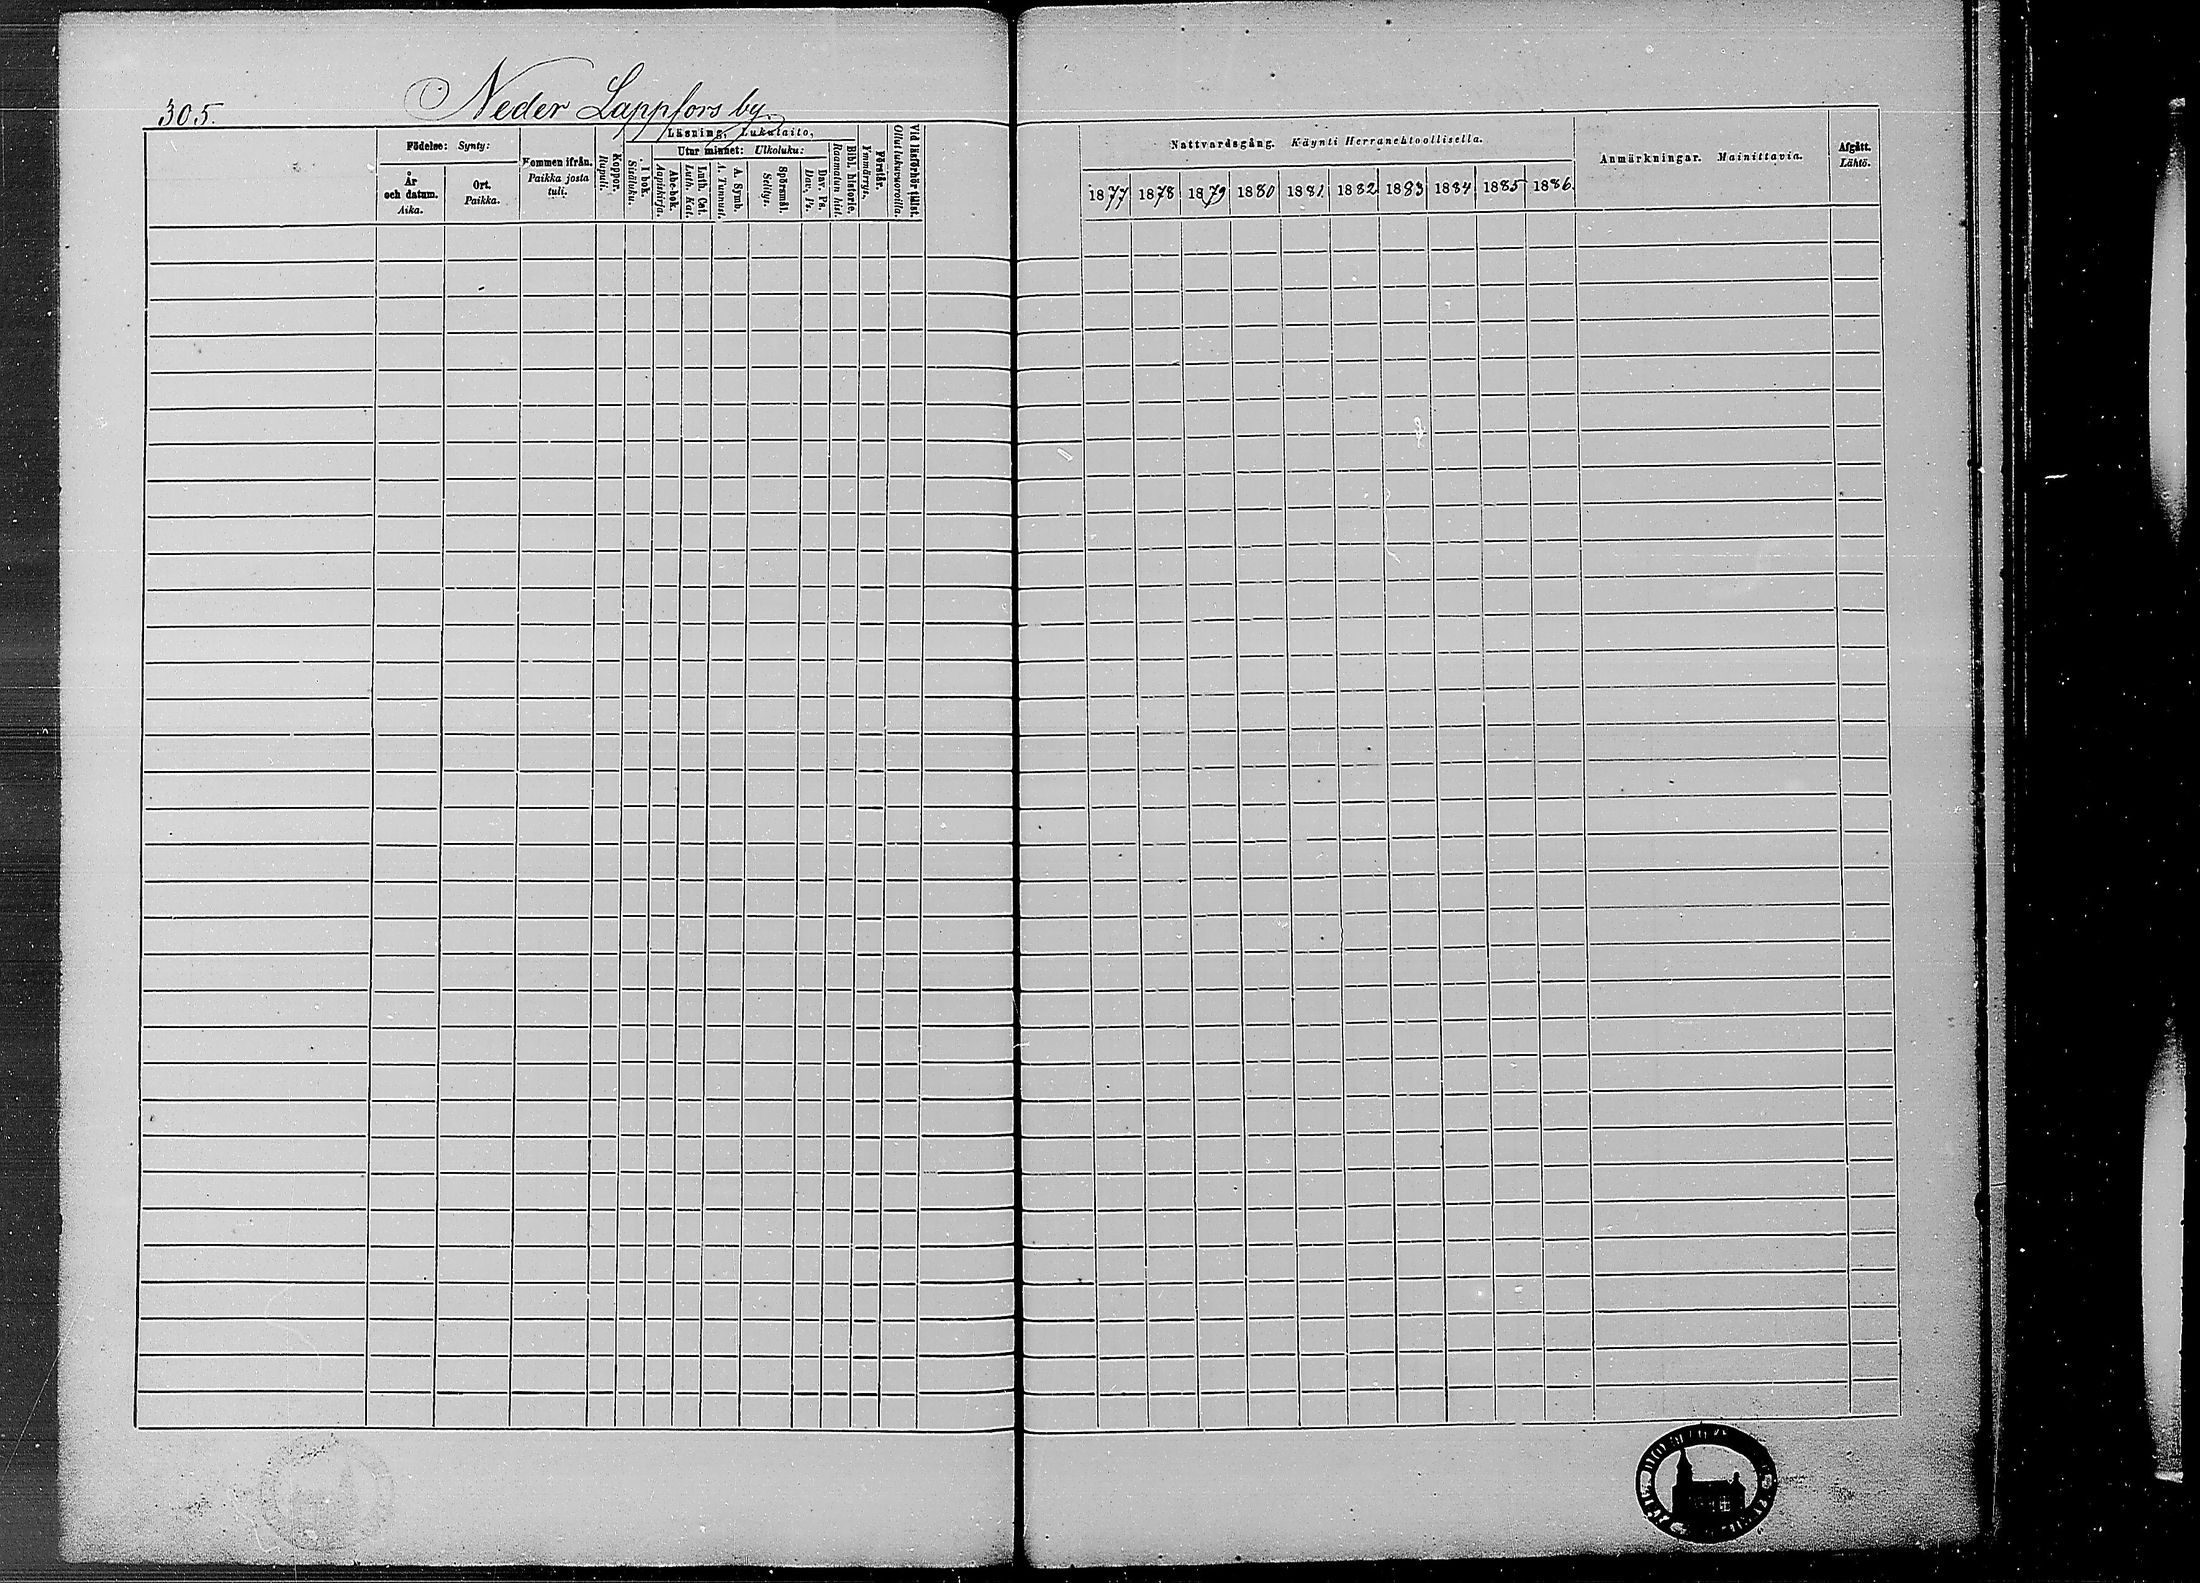 305.
Neder Lappfors by.
Födelse: Synty:
År
och datum.
Aika.
Ort.
Paikka.
Kommen ifrån.
Paikka josta
tuli.
Koppor.
Rupuli.
Läsning, Lukutaito,
I bok.
Sisäluku.
Utur minnet: Ulkoluku:
Abc-bok.
Aapiskirja.
Luth. Cat.
Luth. Kat.
A. Symb.
A. Tunnust.
Spörsmål.
Selitys.
Dav. Ps.
Dav. Ps.
Bibl. historie.
Raamatun hist.
Förstår.
Ymmärrys.
Vid läsförhör tillst.
Ollut lukuvuoroilla.
Nattvardsgång. Käynti Herranehtoollisella.
1877 1878 1879 1880 1881. 1882 1883 1884 1885 1886.
Anmärkningar. Mainittavia.
Afgått.
Lähtö.